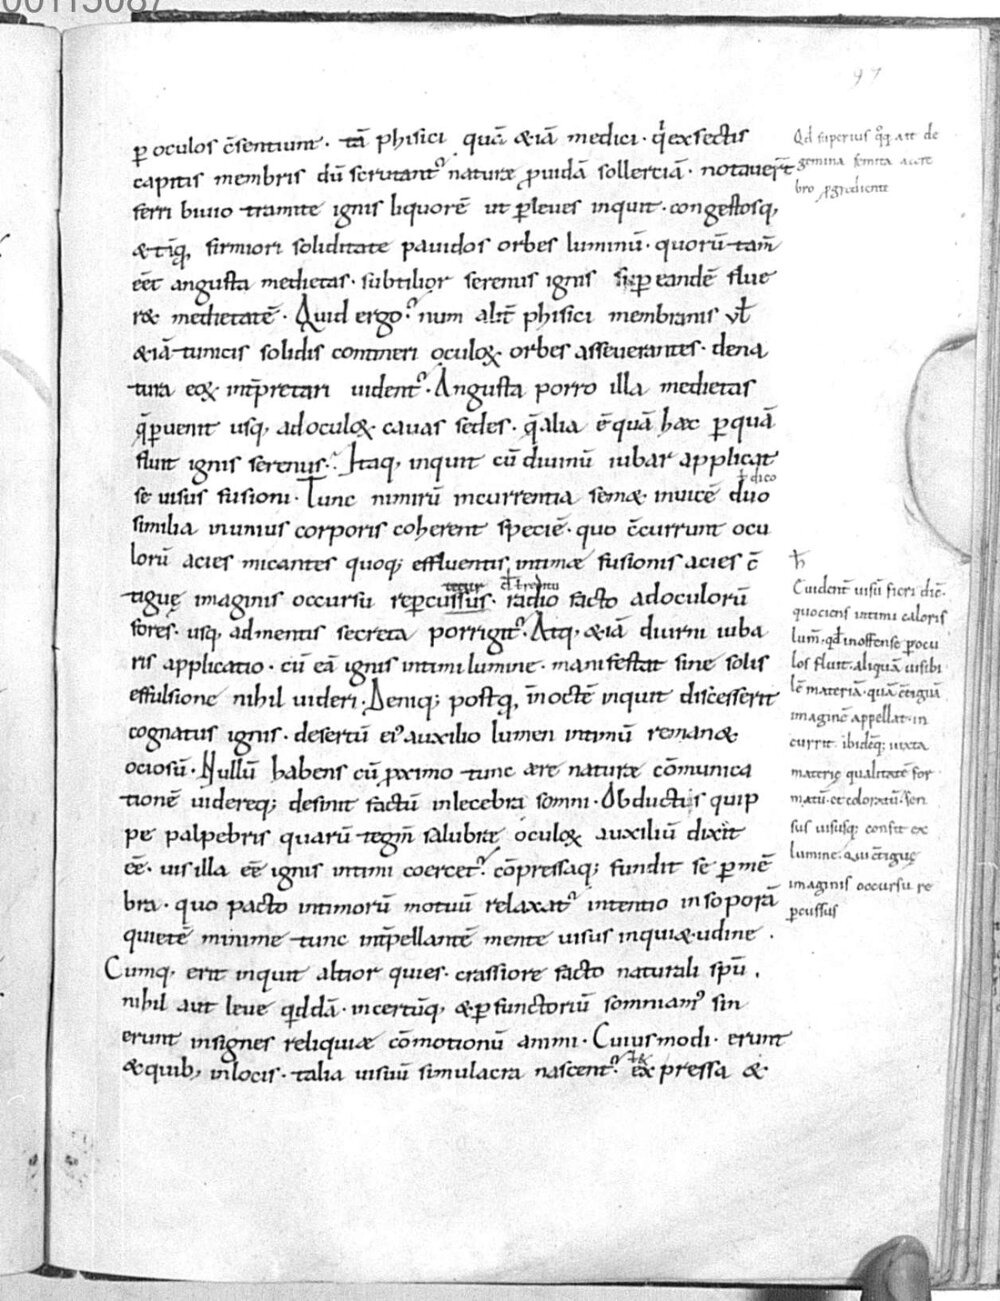 00113087
97
ꝑ oculos c̄sentiunt. tā phisici quā &iā medici. q̇ exsectis
capitis membris dū scrutant᷒ naturæ ꝓuidā sollertiā. notauer̄t
ferri biuio tramite ignis liquorē ut ꝑleues inquit. congestosq,
&tīq, firmiori soliditate pauidos orbes luminū. quorū tam̄
eēt angusta medietas. subtilior serenus ignis ꝑ eandē flue
r& medietatē. Quid ergo? num alit̄ phisici membranis vł
&iā tunicis solidis contineri oculoꝝ orbes asseuerantes. de na
tura eoꝝ int̄pretari uident᷒. Angusta porro illa medietas
q̄ ꝑuenit usq, ad oculoꝝ cauas sedes. q̄ alia ē quā hæc ꝑ quā
fluit ignis serenus. Itaq, inquit cū diuinū iubar applicat
se uisus fusioni. Tunc nimirū incurrentia semæ inuicē duo
similia in unius corporis coherent speciē. quo c̄currunt ocu
lorū acies micantes quoq; effluentis intimæ fusionis acies c̄
tiguę imaginis occursu repercussus. radio facto ad oculorū
fores. usq, ad mentis secreta porrigit᷒. Atq, &iā diurni iuba
ris applicatio. cū eā ignis intimi lumine. manifestat sine solis
effulsione nihil uideri. Deniq; postq, in octē inquit discesserit
cognatus ignis. desertū ei᷒ auxilio lumen intimū reman&
ociosū. Nullū habens cū ꝓximo tunc ære naturæ cōmunica
tionē uidereq; desinit factū inlecebra somni. Obductis quip
pe palpebris quarū tegm̄ salubritæ oculoꝝ auxiliū dixit
eē. uis illa eē ignis intimi coercet᷒. cōpressaq; fundit se ꝑ mē
bra. quo pacto intimorū motuū relaxat᷒ intentio in soporā
quietē minime tunc int̄pellantē mente uisus inqui&udine.
Cumq, erit inquit altior quies. crassiore facto naturali spū.
nihil aut leue q̇ddā. incertūq, & ꝑfunctoriū somniam᷒ sin
erunt insignes reliquiæ cōmotionū animi. Cuiusmodi. erunt
& quib, in locis. talia uisuū simulacra nascent᷒. expressa &
ł dico
Qd superius q̄q, ait de
gemina semita acere
bro ꝓgrediente
Euident̄ uisū fieri dic̄.
quociens intimi caloris
lum̄. qd inoffense ꝑ ocu
los fluit. aliquā uisibi
lē materiā. quā c̄tiguā
imaginē appellat. in
currit. ibidēq; iuxta
materię qualitatē for
matū. et coloratū. sen
sus uisusq; confit ex
lumine. qui c̄tiguę
imaginis occursu re
ꝑcussus